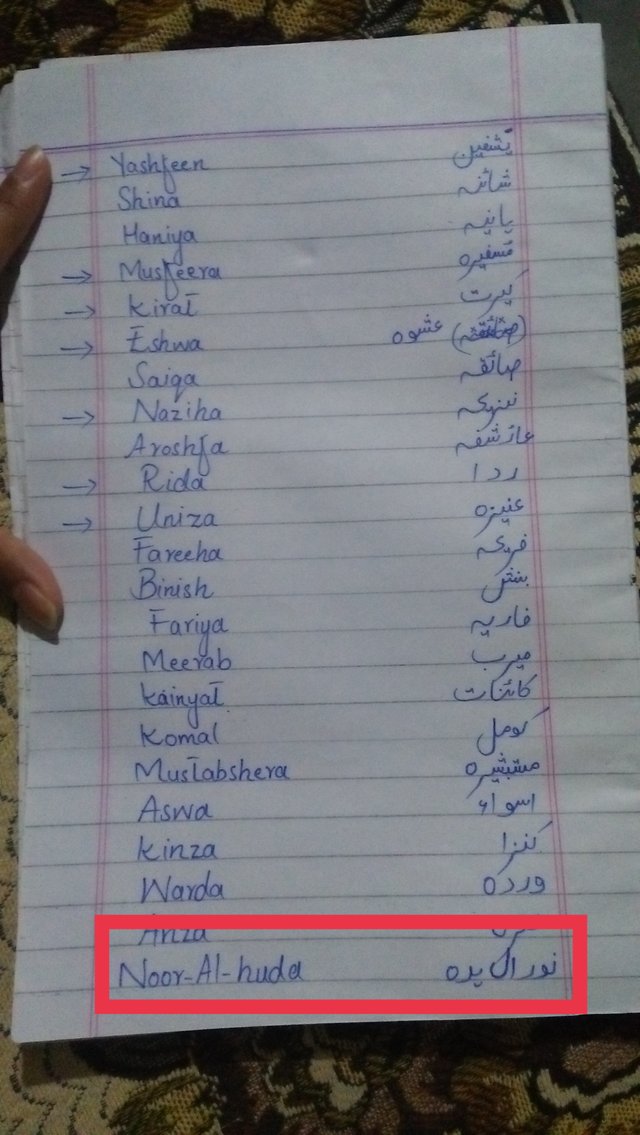 Yashfeen یشفین
Shina شائنہ
Haniya ہانیہ
Musfeera مسفیرہ
Kirat کیرت
Eshwa عشوہ
Saiqa صائقہ
Naziha نزیحہ
Aroshfa عارشفہ
Rida ردا
Uniza عنیزہ
Fareeha فریحہ
Binish بنش
Fariya فاریہ
Meerab میرب
Kainyat کائنات
Komal کومل
Mustabshera مستبشیرہ
Aswa اسواء
Kinza کنزا
Warda وردہ
Anza
Noor-Al-huda نور ال ہدہ